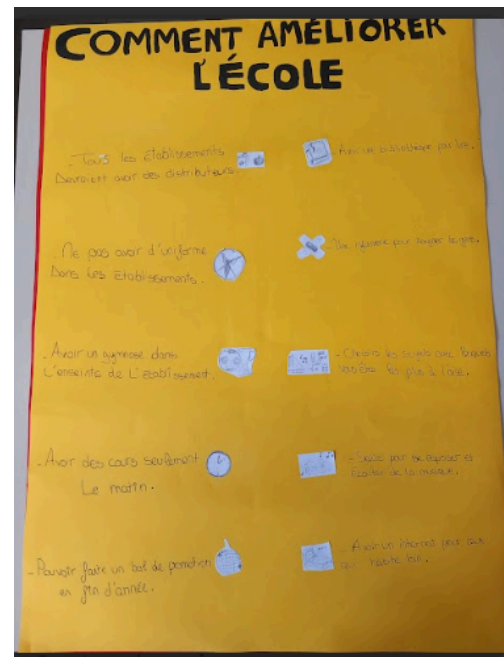 COMMENT AMÉLIORER
L'ÉCOLE
- Tous les Établissements
Devraient avoir des distributeurs
- Ne pas avoir d'uniforme
Dans les Etablissements.
- Avoir un gymnase dans
L'enseinte de L'Etablissement.
- Avoir des cours seulement
Le matin.
- Pouvoir faire un bal de promotion
en fin d'année.
Avoir une bibliothèque pour lire.
- Une infirmerie pour soigner les gens.
- Choisir les sujets avec lesquels
être les plus à l'aise.
- Salle pour se reposer et
écouter de la musique.
- Avoir un internat pour ceux
qui habite loin.